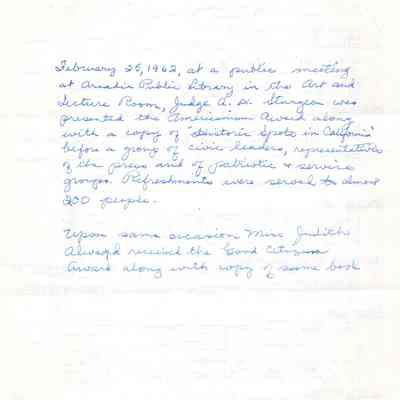 February 25, 1962, at a public meeting
at Arcadia Public Library in the Art and
Lecture Room, Judge A. D. Sturgeon was
presented the Americanism Award along
with a copy of "Historic Spots in California"
before a group of civic leaders, representatives
of the press and of patriotic & service
groups. Refreshments were served to almost
200 people.
Upon same occasion Miss Judith
received the Good Citizen
Award along with copy of same book